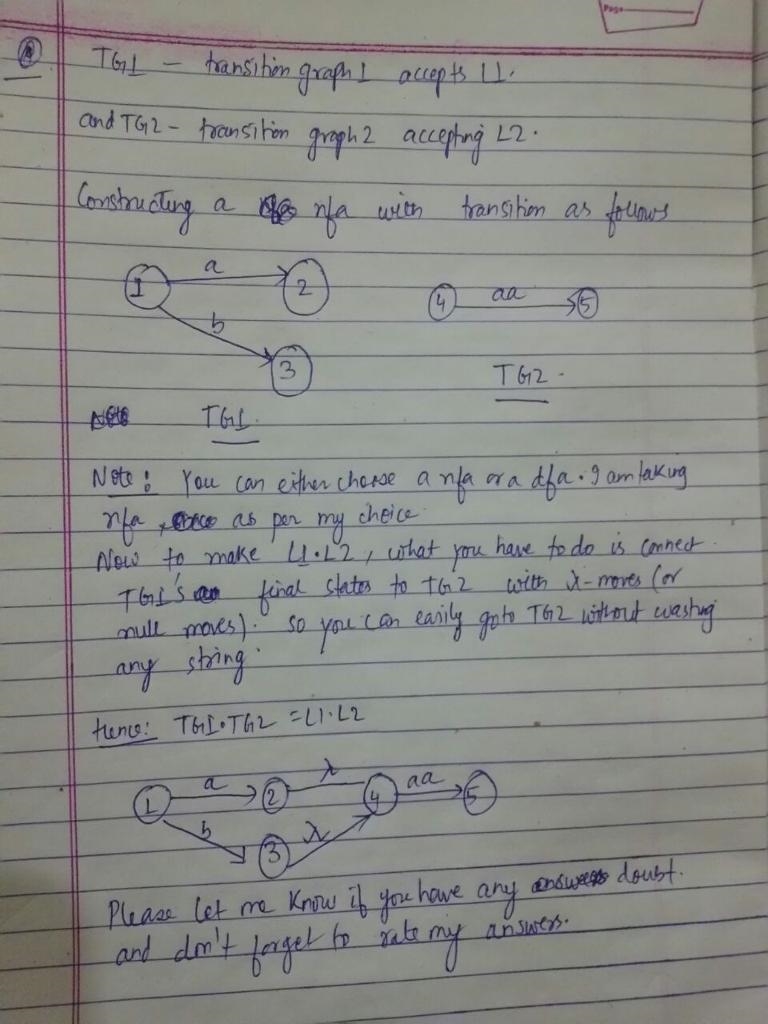 Page
TG1 - transition graph 1 accepts L1.
and TG2 - transition graph 2 accepting L2.
Constructing a nfa with transition as follows
a
1 2
4 aa 5
b
3
TG2.
Note TG1.
Note: You can either choose a nfa or a dfa. I am taking
nfa, as per my choice.
Now to make L1.L2, what you have to do is connect
TG1's final states to TG2 with λ-moves (or
null moves). so you can easily goto TG2 without wasting
any string.
Hence: TG1.TG2 = L1.L2
1 a 2 λ 4 aa 5
b 3 λ
Please let me know if you have any doubt.
and don't forget to rate my answers.